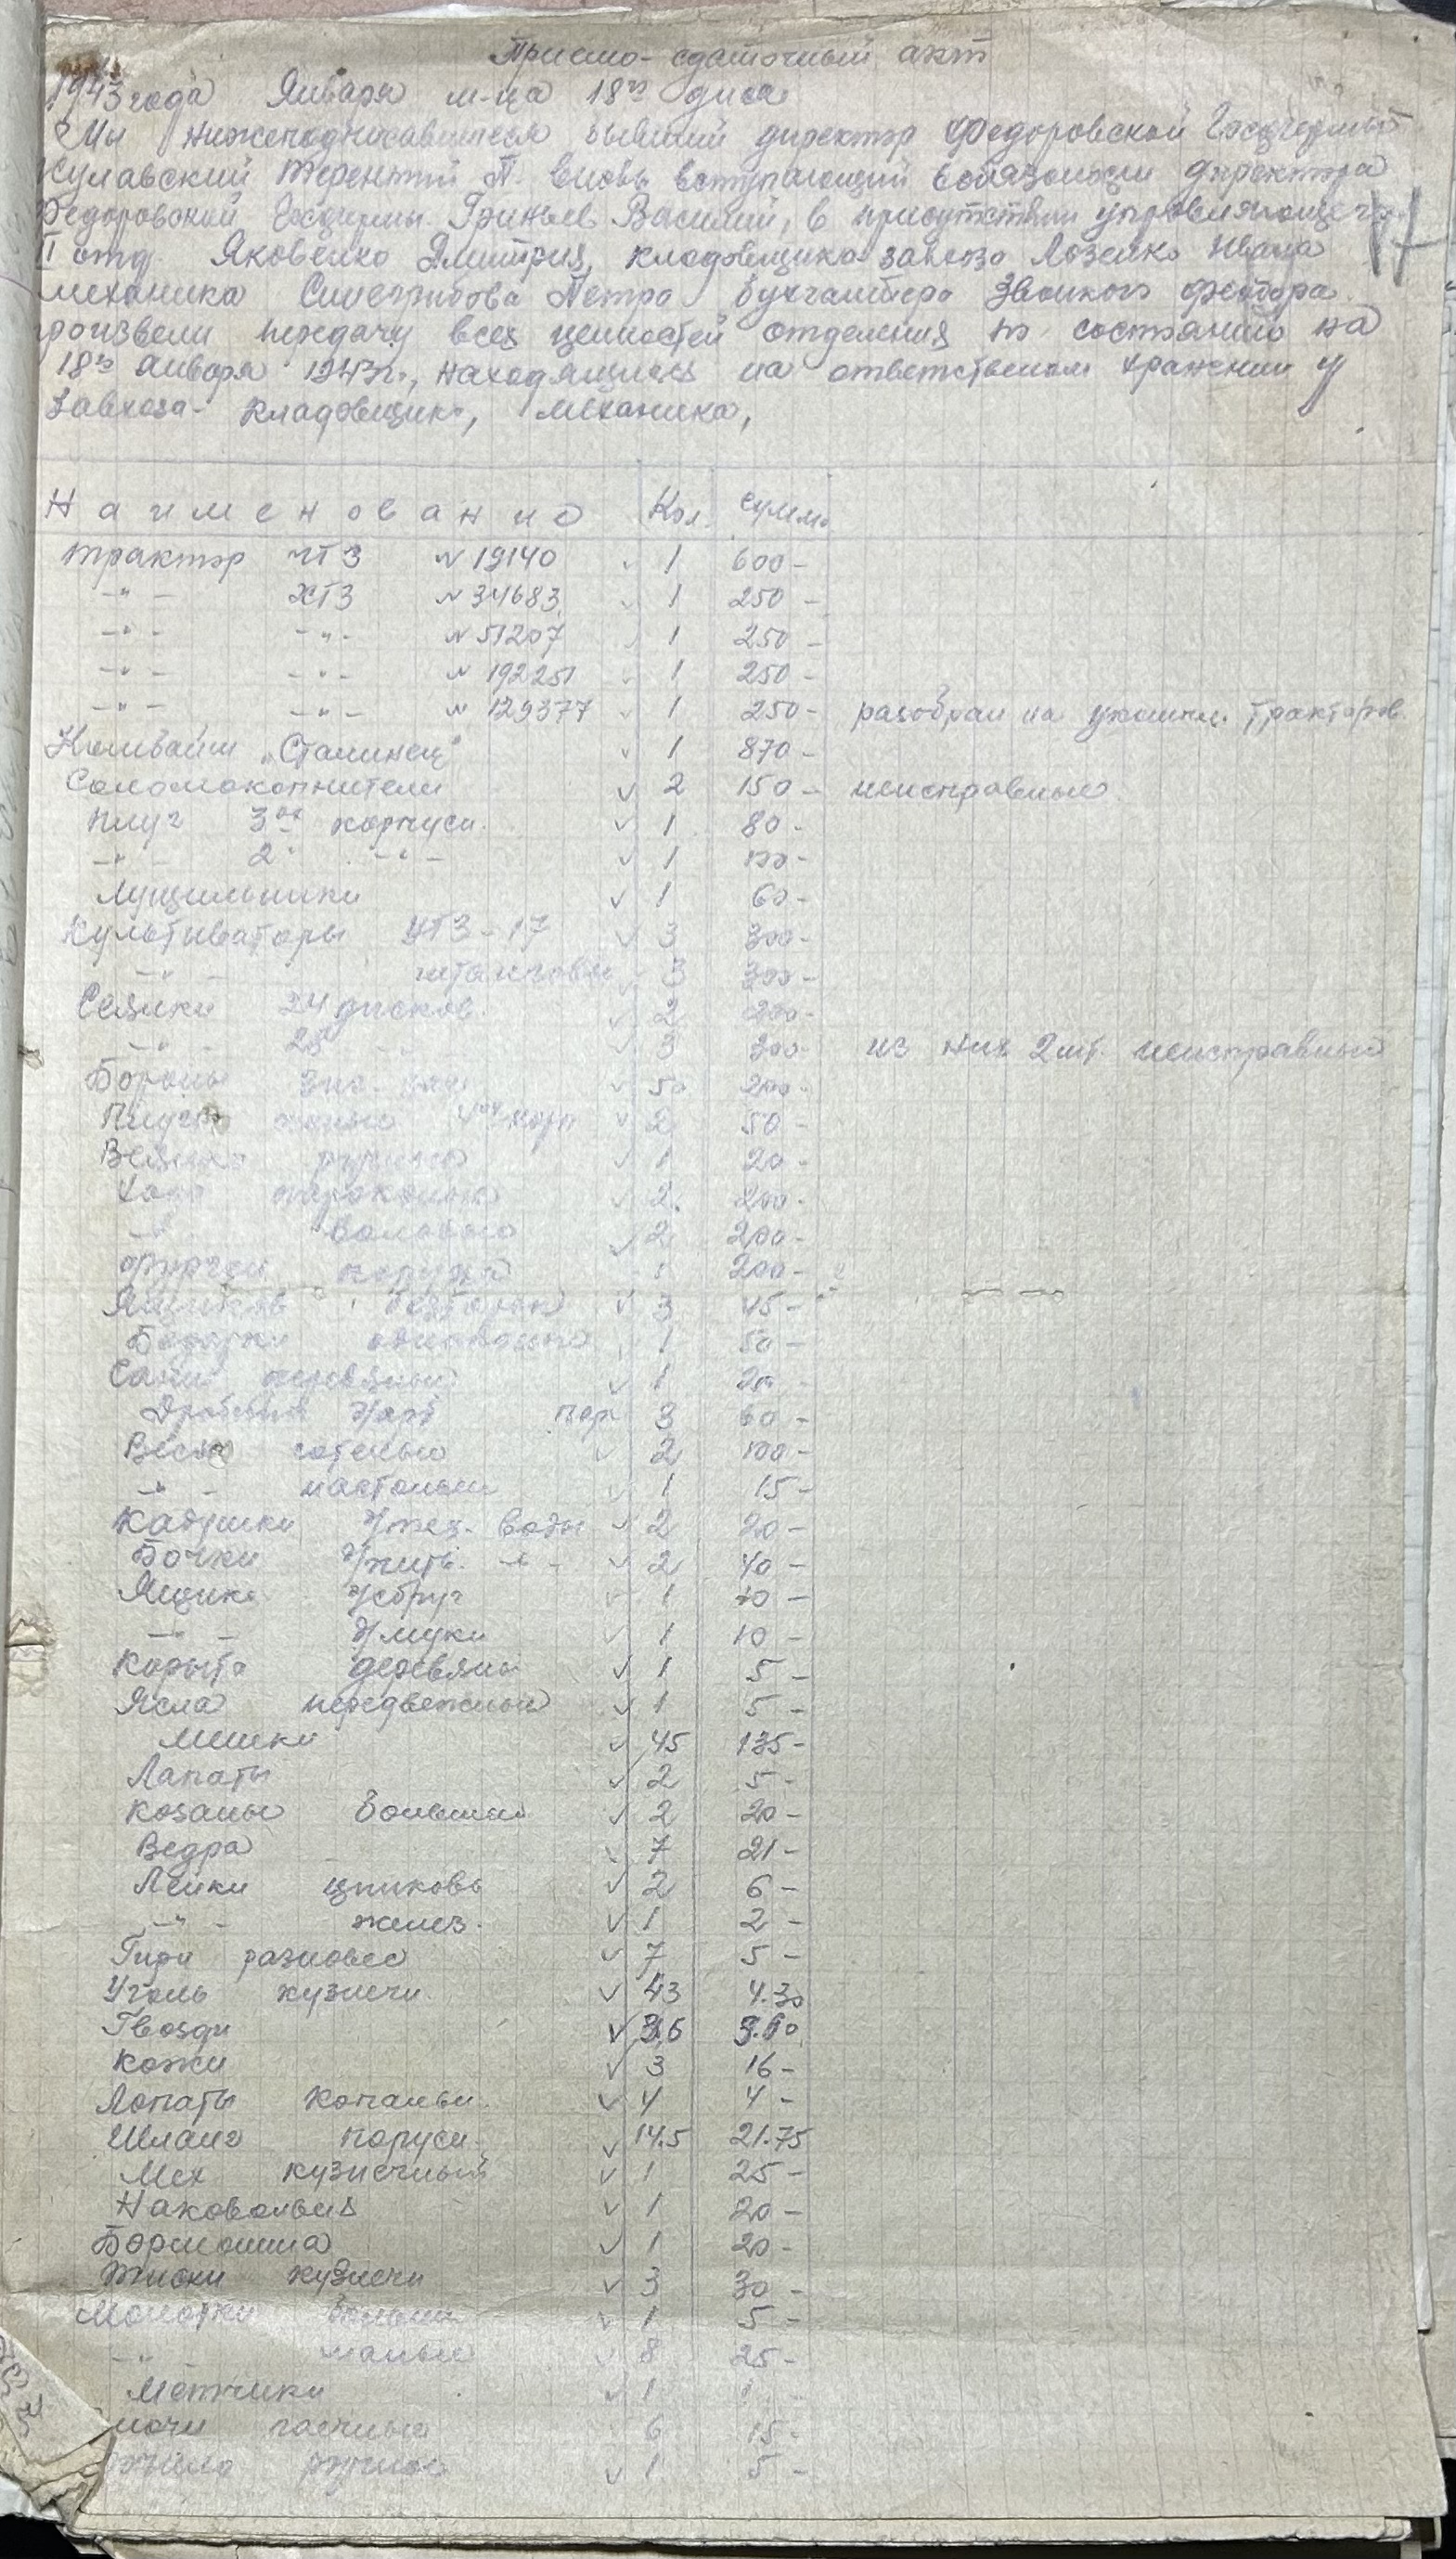 Приемо-сдаточный акт
1943 года Января м-ца 18го дня
Мы нижеподписавшиеся бывший директор Федоровской Госфермы
Кулавский Терентий П. вновь вступающий в обязоности директора
Федоровской Госфермы Гриньев Василий, в присутствии управляющего
II отд. Яковенко Дмитрия, кладовщика завхоза Лозенко Ивана
механика Синегрибова Петра бухгалтера Звонкого Федора
произвели передачу всех ценностей отделения по состоянию на
18го января 1943 г., находящиеся на ответственом хранении у
Завхоза-кладовщика, механика,
Наименование Кол. Сумма
Трактор ЧТЗ N 19140 v 1 600-
-"- ХТЗ N 34683 v 1 250-
-"- -"- N 51207 v 1 250-
-"- -"- N 192251 v 1 250-
-"- -"- N 129377 v 1 250- разобран на тракторов
Комбайн „Сталинец" v 1 870-
Соломокопнители v 2 150- неисправные
Плуг 3ох корпусн. v 1 80-
-"- 2" -"- v 1 100-
Лущильники v 1 60-
Культиваторы УТЗ-17 v 3 300-
-"- штанговы v 3 300-
Сеялки 24 дисков. v 2 200-
-"- 28 -"- v 3 300- из них 2 шт. неисправный
Бороны Зиг-заг v 50 200-
Плуги конные корп v 2 50-
Веялка ручная v 1 20-
Хода пароконные v 2 200-
-"- воловьи v 2 200-
200-
Ящиков v 3 45-
Бедарки одноконные 1 50-
Сани v 1 20-
пар 3 60-
Весы сотенные v 2 100-
-"- настольные v 1 15-
Кадушки д/тех. воды v 2 20-
Бочки д/пить. -"- v 2 40-
Ящик д/сбруи v 1 10-
-"- д/муки v 1 10-
Корыто деревян v 1 5-
Ясла передвежные v 1 5-
Мешки v 45 135-
Лапаты v 2 5-
Козаны большие v 2 20-
Ведра v 7 21-
Лейки цинковы v 2 6-
-"- желез. v 1 2-
Гири разновес v 7 5-
Уголь кузнечн. v 43 4.30
Гвозди v
Кожи v 3 16-
Лопаты копальн. v 4 4-
Шланг парусн. v 14.5 21.75
Мех кузнечный v 1 25-
Наковальня v 1 20-
Бормошина v 1 20-
Тиски кузнечн v 3 30-
Молотки больши v 1 5-
-"- малые v 8 25-
Метчики v 1
гаечные 6 15-
ручное v 1 5-